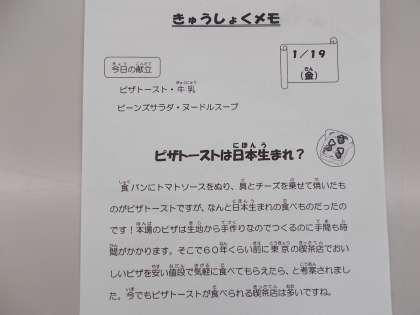 きゅうしょくメモ
1/19
(金)
今日の献立
ピザトースト・牛乳
ビーンズサラダ・ヌードルスープ
ピザトーストは日本生まれ?
食パンにトマトソースをぬり、具とチーズを乗せて焼いたも
のがピザトーストですが、なんと日本生まれの食べものだったの
です!本場のピザは生地から手作りなのでつくるのに手間も時
間がかかります。そこで60年くらい前に東京の喫茶店でおい
しいピザを安い値段で気軽に食べてもらえたら、と考案されまし
た。今でもピザトーストが食べられる喫茶店は多いですね。